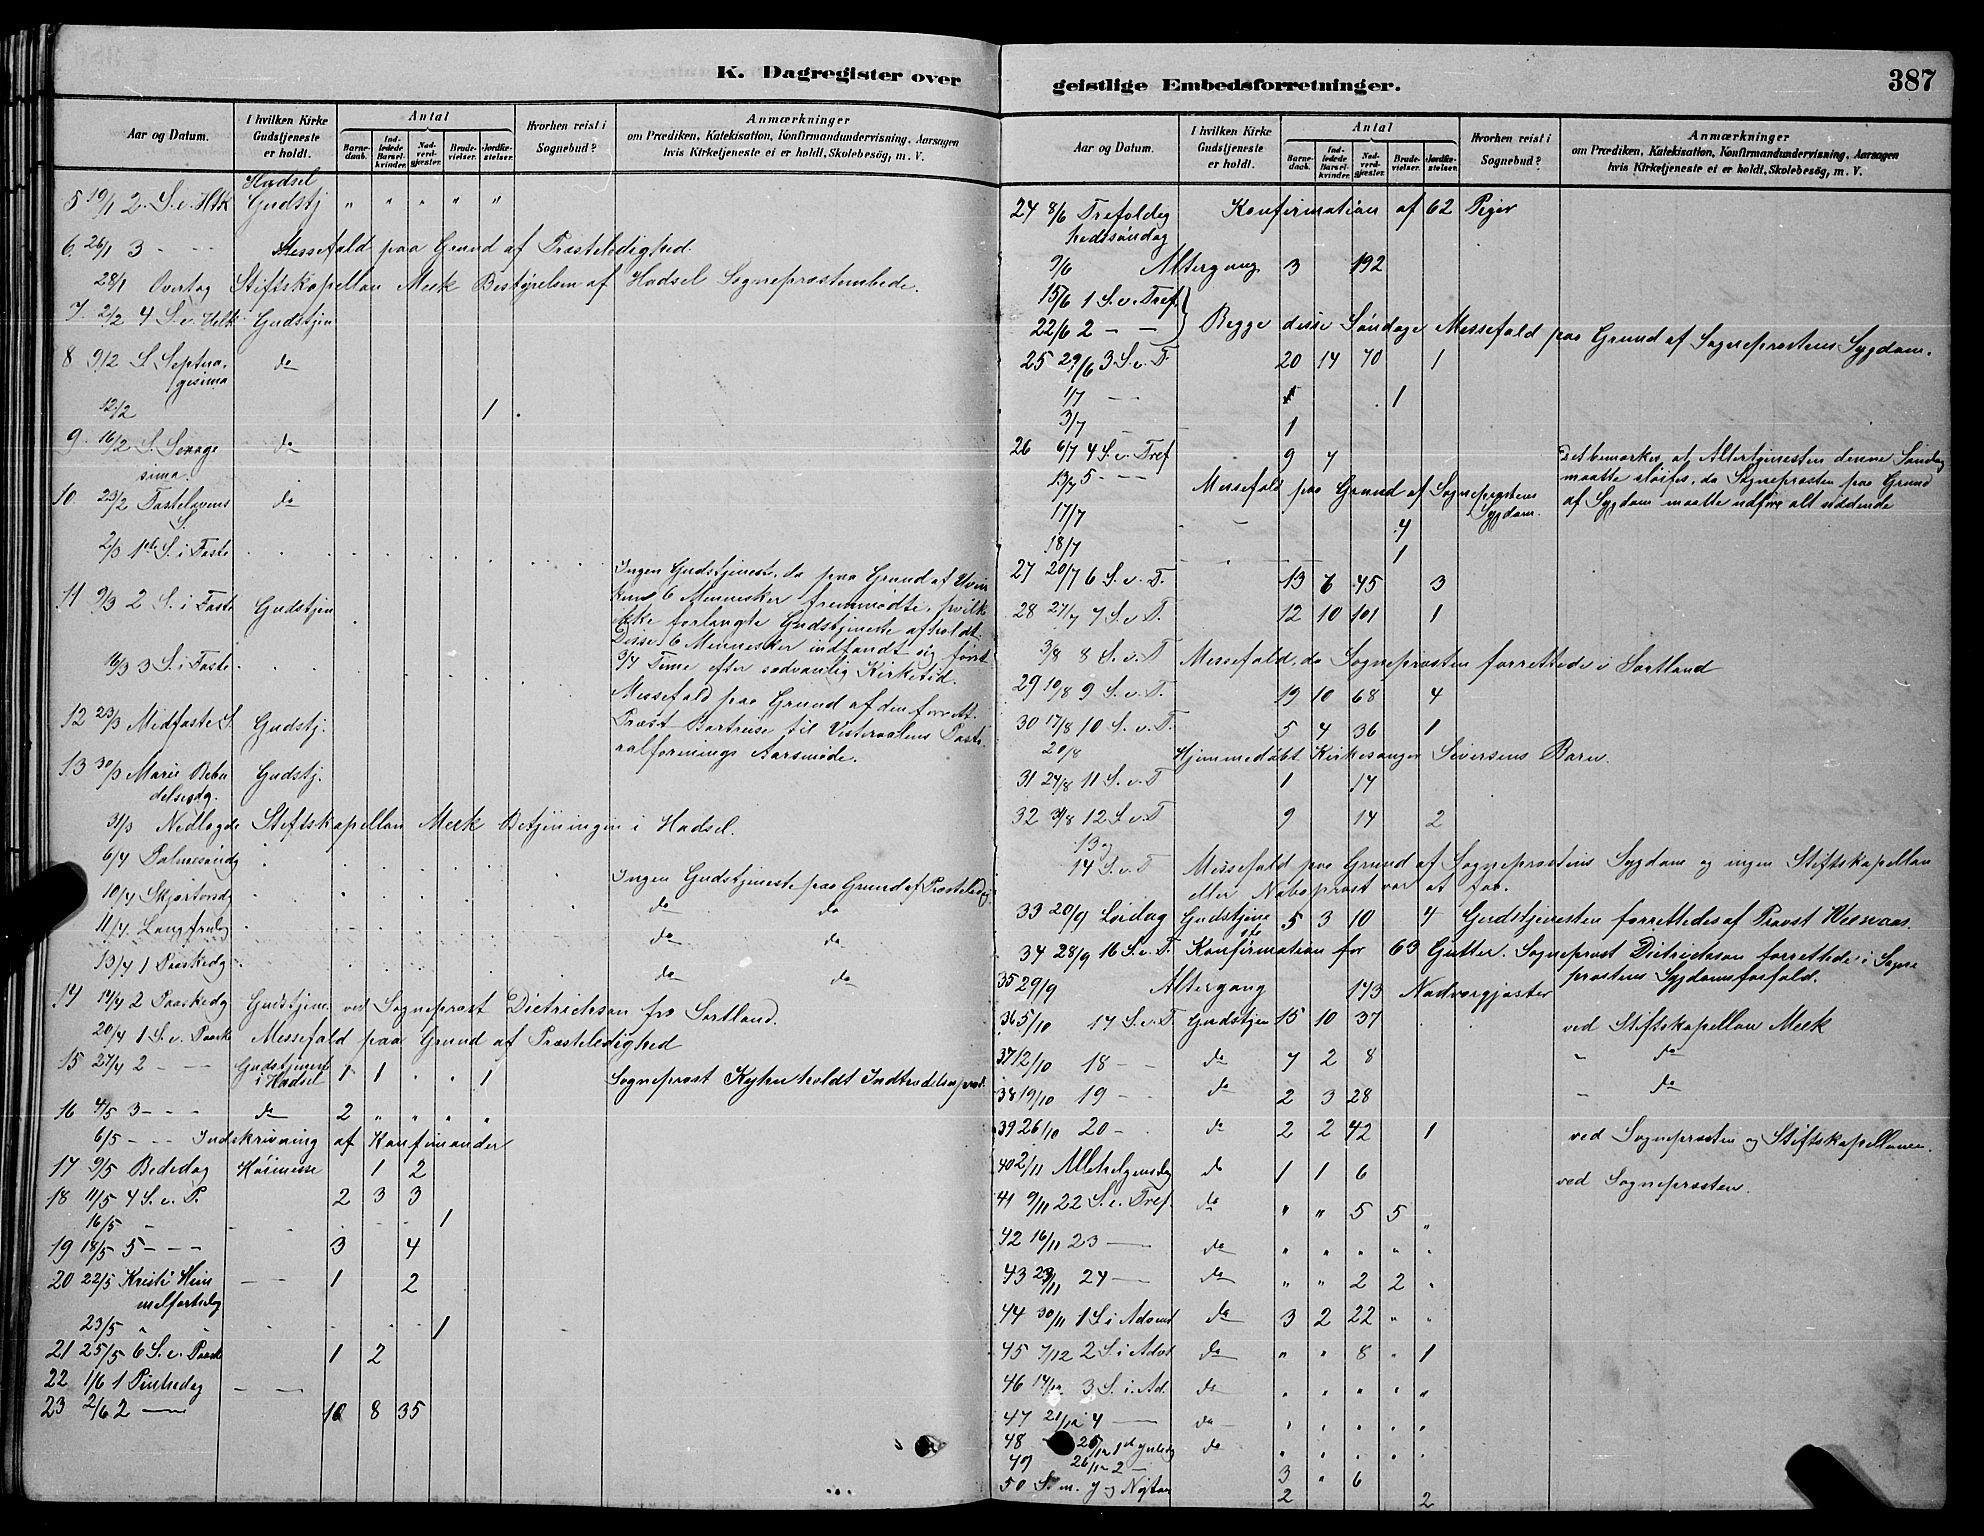 K. Dagregister over
Aar og Datum.
I hvilken Kirke Gudstjeneste er holdt.
Antal
Barnedaab.
Indledede Barselkvinder.
Nadverdgjester.
Brudevielser.
Jordfæstelser.
Hvorhen reist i Sognebud?
Anmærkninger
om Prædiken, Katekisation, Konfirmandundervisning, Aarsagen
hvis Kirketjeneste ei er holdt, Skolebesøg, m. V.
Hadsel
5 19/1 2. S. e. Htk Gudstj " " " " "
6. 26/1 3 - - - Messefald paa Grund af Præsteledighed.
28/1 Overtog Stiftskapellan Merk Bestyrelsen af Hadsel Sogneprestembede.
7. 2/2 4 S. e. Helk Gudstjen
8 9/2 S Septua-
gesima do
12/2 1
9. 16/2 S. Sexage
sima do
10. 23/2 Fastelavens
S. do
2/3 1ste S. i Faste
Ingen Gudstjeneste, da paa Grund af Uveir
11 9/3 2 S. i Faste Gudstjen
kun 6 Mennesker fremmødte, hvilke
ikke forlangte Gudstjeneste afholdt.
Disse 6 Mennesker indfandt sig først
16/3 3 S. i Faste
3/4 Time efter sedvanlig Kirketid.
Messefald paa Grund af den forrett.
12 23/3 Midfaste S. Gudstj.
Præst Bortreise til Vesteraalens Pasto-
ralforenings Aarsmøde.
13 30/3 Mariæ Bebu
delsesdg. Gudstj.
31/3 Nedlagde Stiftskapellan Merk Betjeningen i Hadsel.
6/4 Palmesøndg
10/4 Skjærtorsdg Ingen Gudstjeneste paa Grund af Præsteledig.
11/4 Langfredg do do
13/4 1 Paaskedg do do
do do
14 14/4 2 Paaskedg Gudstjen. ved Sogneprest Dietrichson fra Sortland.
20/4 1 S. e. Paaske Messefald paa Grund af Præsteledighed
15 27/4 2 - - - Gudstjenest
i Hadsel 1 1 . . 1 Sogneprest Kyhn holdt Indtrædelsespræd.
16 4/5 3 - - - do 2 " " " "
6/5 - - - Indskrivning af Konfirmander
17 9/5 Bededag Høimesse 1 2
18 11/5 4 S. e. P. 2 3 3
16/5 " 1
19 18/5 5 - - - 3 4
20 22/5 Kristi Him
melfartsdag - - 1 2
23/5 " 1
21 25/5 6 S. e. Paaske 1 2
22 1/6 1 Pintsedag - -
23 2/6 2 - 10 8 35
geistlige Embedsforretninger.
387
Aar og Datum.
I hvilken Kirke Gudstjeneste er holdt.
Antal
Barnedaab.
Indledede Barselkvinder.
Nadverdgjester.
Brudevielser.
Jordfæstelser.
Hvorhen reist i Sognebud?
Anmærkninger
om Prædiken, Katekisation, Konfirmandundervisning, Aarsagen
hvis Kirketjeneste ei er holdt, Skolebesøg, m. V.
24 8/6 Trefoldig
hedssøndag Konfirmation af 62 Piger
9/6 Altergang 3 192
15/6 1 S. e. Tref.
22/6 2 - - } Begge disse Søndage Messefald paa Grund af Sogneprestens Sygdom.
25 29/6 3 S. e. T. 20 14 70 1
1/7 - - 1
3/7 1
26 6/7 4 S. e. Tref 9 7 Det bemærkes, at Altertjenesten denne Søndag
maatte sløifes, da Sognepræsten paa Grund
af Sygdom maatte udføre alt siddende
13/7 5 - - - Messefald paa Grund af Sogneprestens
Sygdom.
17/7 - - 4
18/7 1
27 20/7 6 S. e. T. 13 6 45 3
28 27/7 7 S. e. T. 12 10 101 1
3/8 8 S. e. T Messefald, da Sognepresten forrettede i Sortland
29 10/8 9 S. e. T. 19 10 68 4
30 17/8 10 S. e. T. 5 4 36 1
20/8 Hjemmedøbt Kirkesanger Siversens Barn.
31 24/8 11 S. e. T 1 14
32 31/8 12 S. e. T 9 14 2
13 og
14 S. e. T Messefald paa Grund af Sogneprestens Sygdom og ingen Stiftskapellan
eller Naboprest var at faa.
33 20/9 Lørdag Gudstjene 5 3 10 4 Gudstjenesten forrettedes af Provst
34 28/9 16 S. e. T. Konfirmation for 63 Gutter. Sogneprest Dietrichson forrettede i Sogne
prestens Sygdomsforfald.
35 29/9 Altergang 173 Nadvergjæster
36 5/10 17 S. e. T. Gudstjen 15 10 37 ved Stiftskapellan Merk
37 12/10 18 - do 7 2 8 " do
38 19/10 19 - do 2 3 28 " do
39 26/10 20 - do 2 2 42 1 ved Sognepresten og Stiftskapellanen.
40 2/11 Allehelgensdag do 1 1 6 ved Sognepresten.
41 9/11 22 S. e. Tref. do " " 5 5 "
42 16/11 23 - do " " " " "
43 23/11 24 - do " " 2 2 "
44 30/11 1 S i Advent do 3 2 22 " "
45 7/12 2 S. i Advt do " " 8 " 1
46 14/12 3 S. i. Ad. do " " " " "
47 21/12 4 - do " " " " "
48 25/12 1ste Juledg do " " " " "
49 26/12 2 - 3 " 6
50 S. m. J og Nytaar 2 2